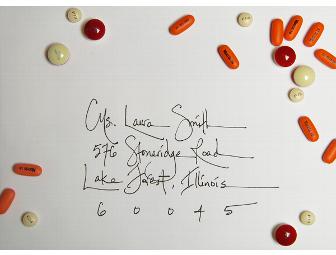 Ms. Laura Smith
576 Stoneridge Road
Lake Forest, Illinois
60045